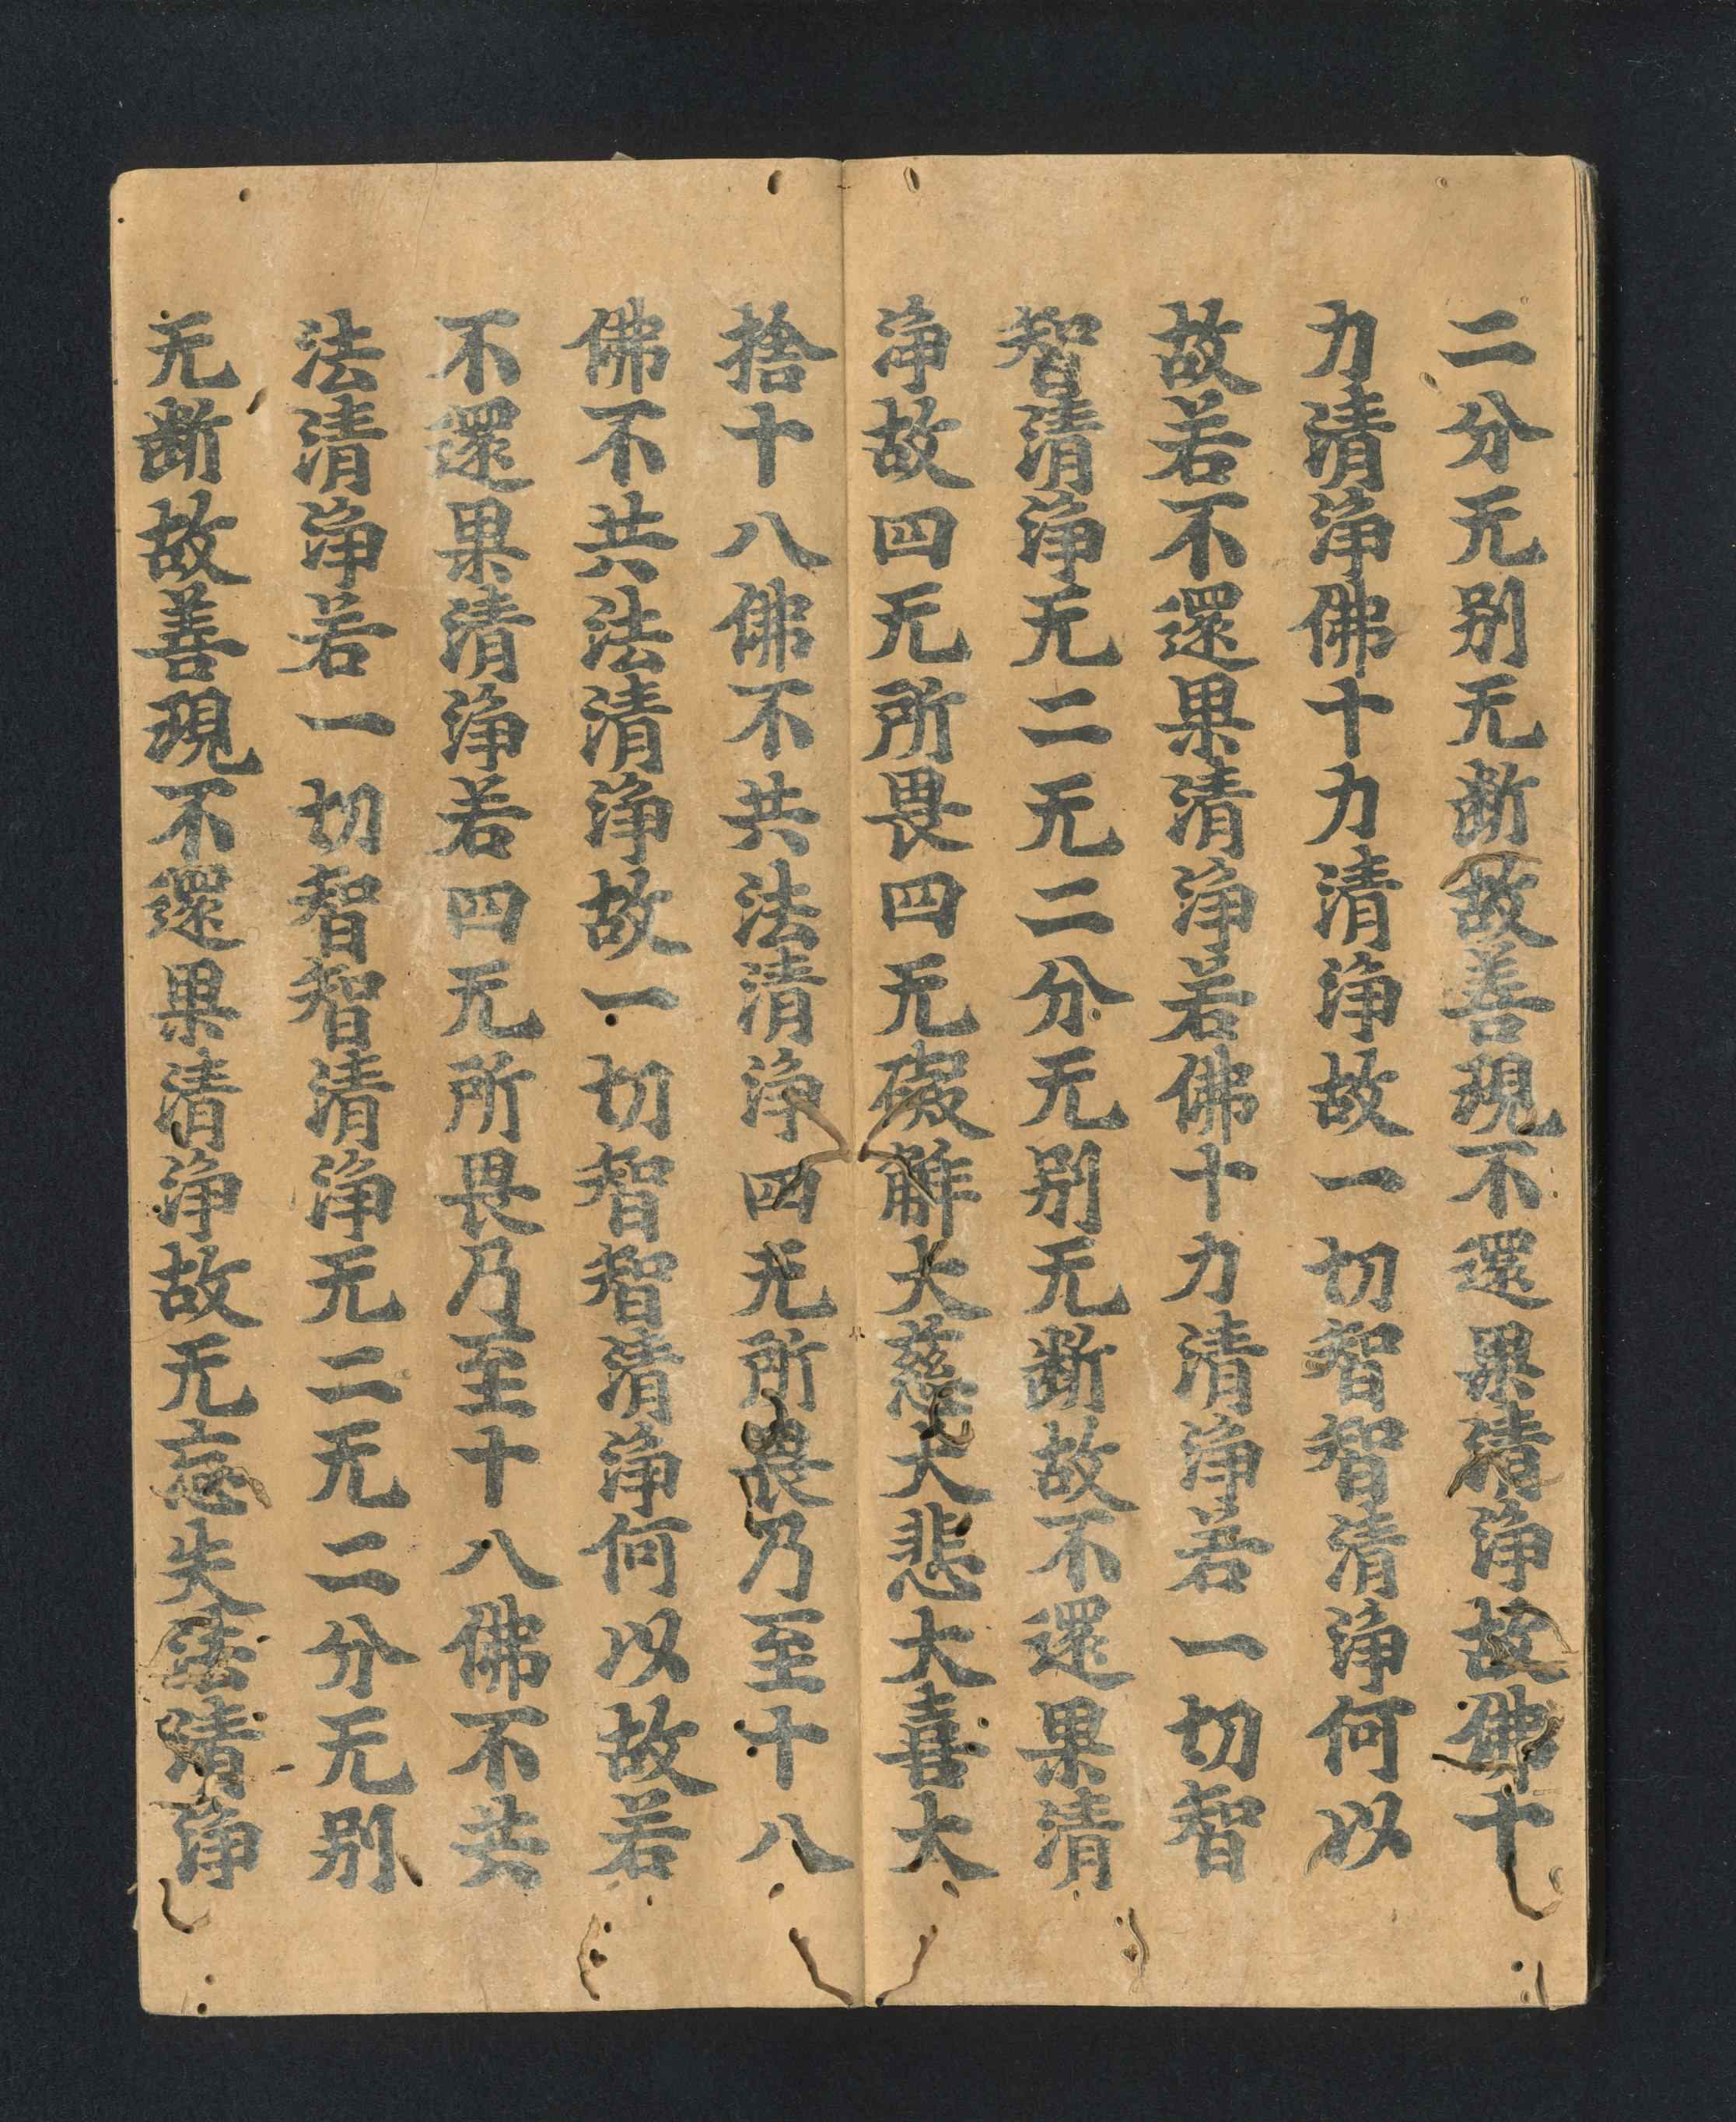 二分无别无断故善現不還果清淨故佛十
力清淨佛十力清淨故一切智智清淨何以
故若不還果清淨若佛十力清淨若一切智
智清淨无二无二分无别无断故不還果清
淨故四无所畏四无礙解大慈大悲大喜大
捨十八佛不共法清淨四无所畏乃至十八
佛不共法清淨故一切智智清淨何以故若
不還果清淨若四无所畏乃至十八佛不共
法清淨若一切智智清淨无二无二分无别
无断故善現不還果清淨故无忘失法清淨